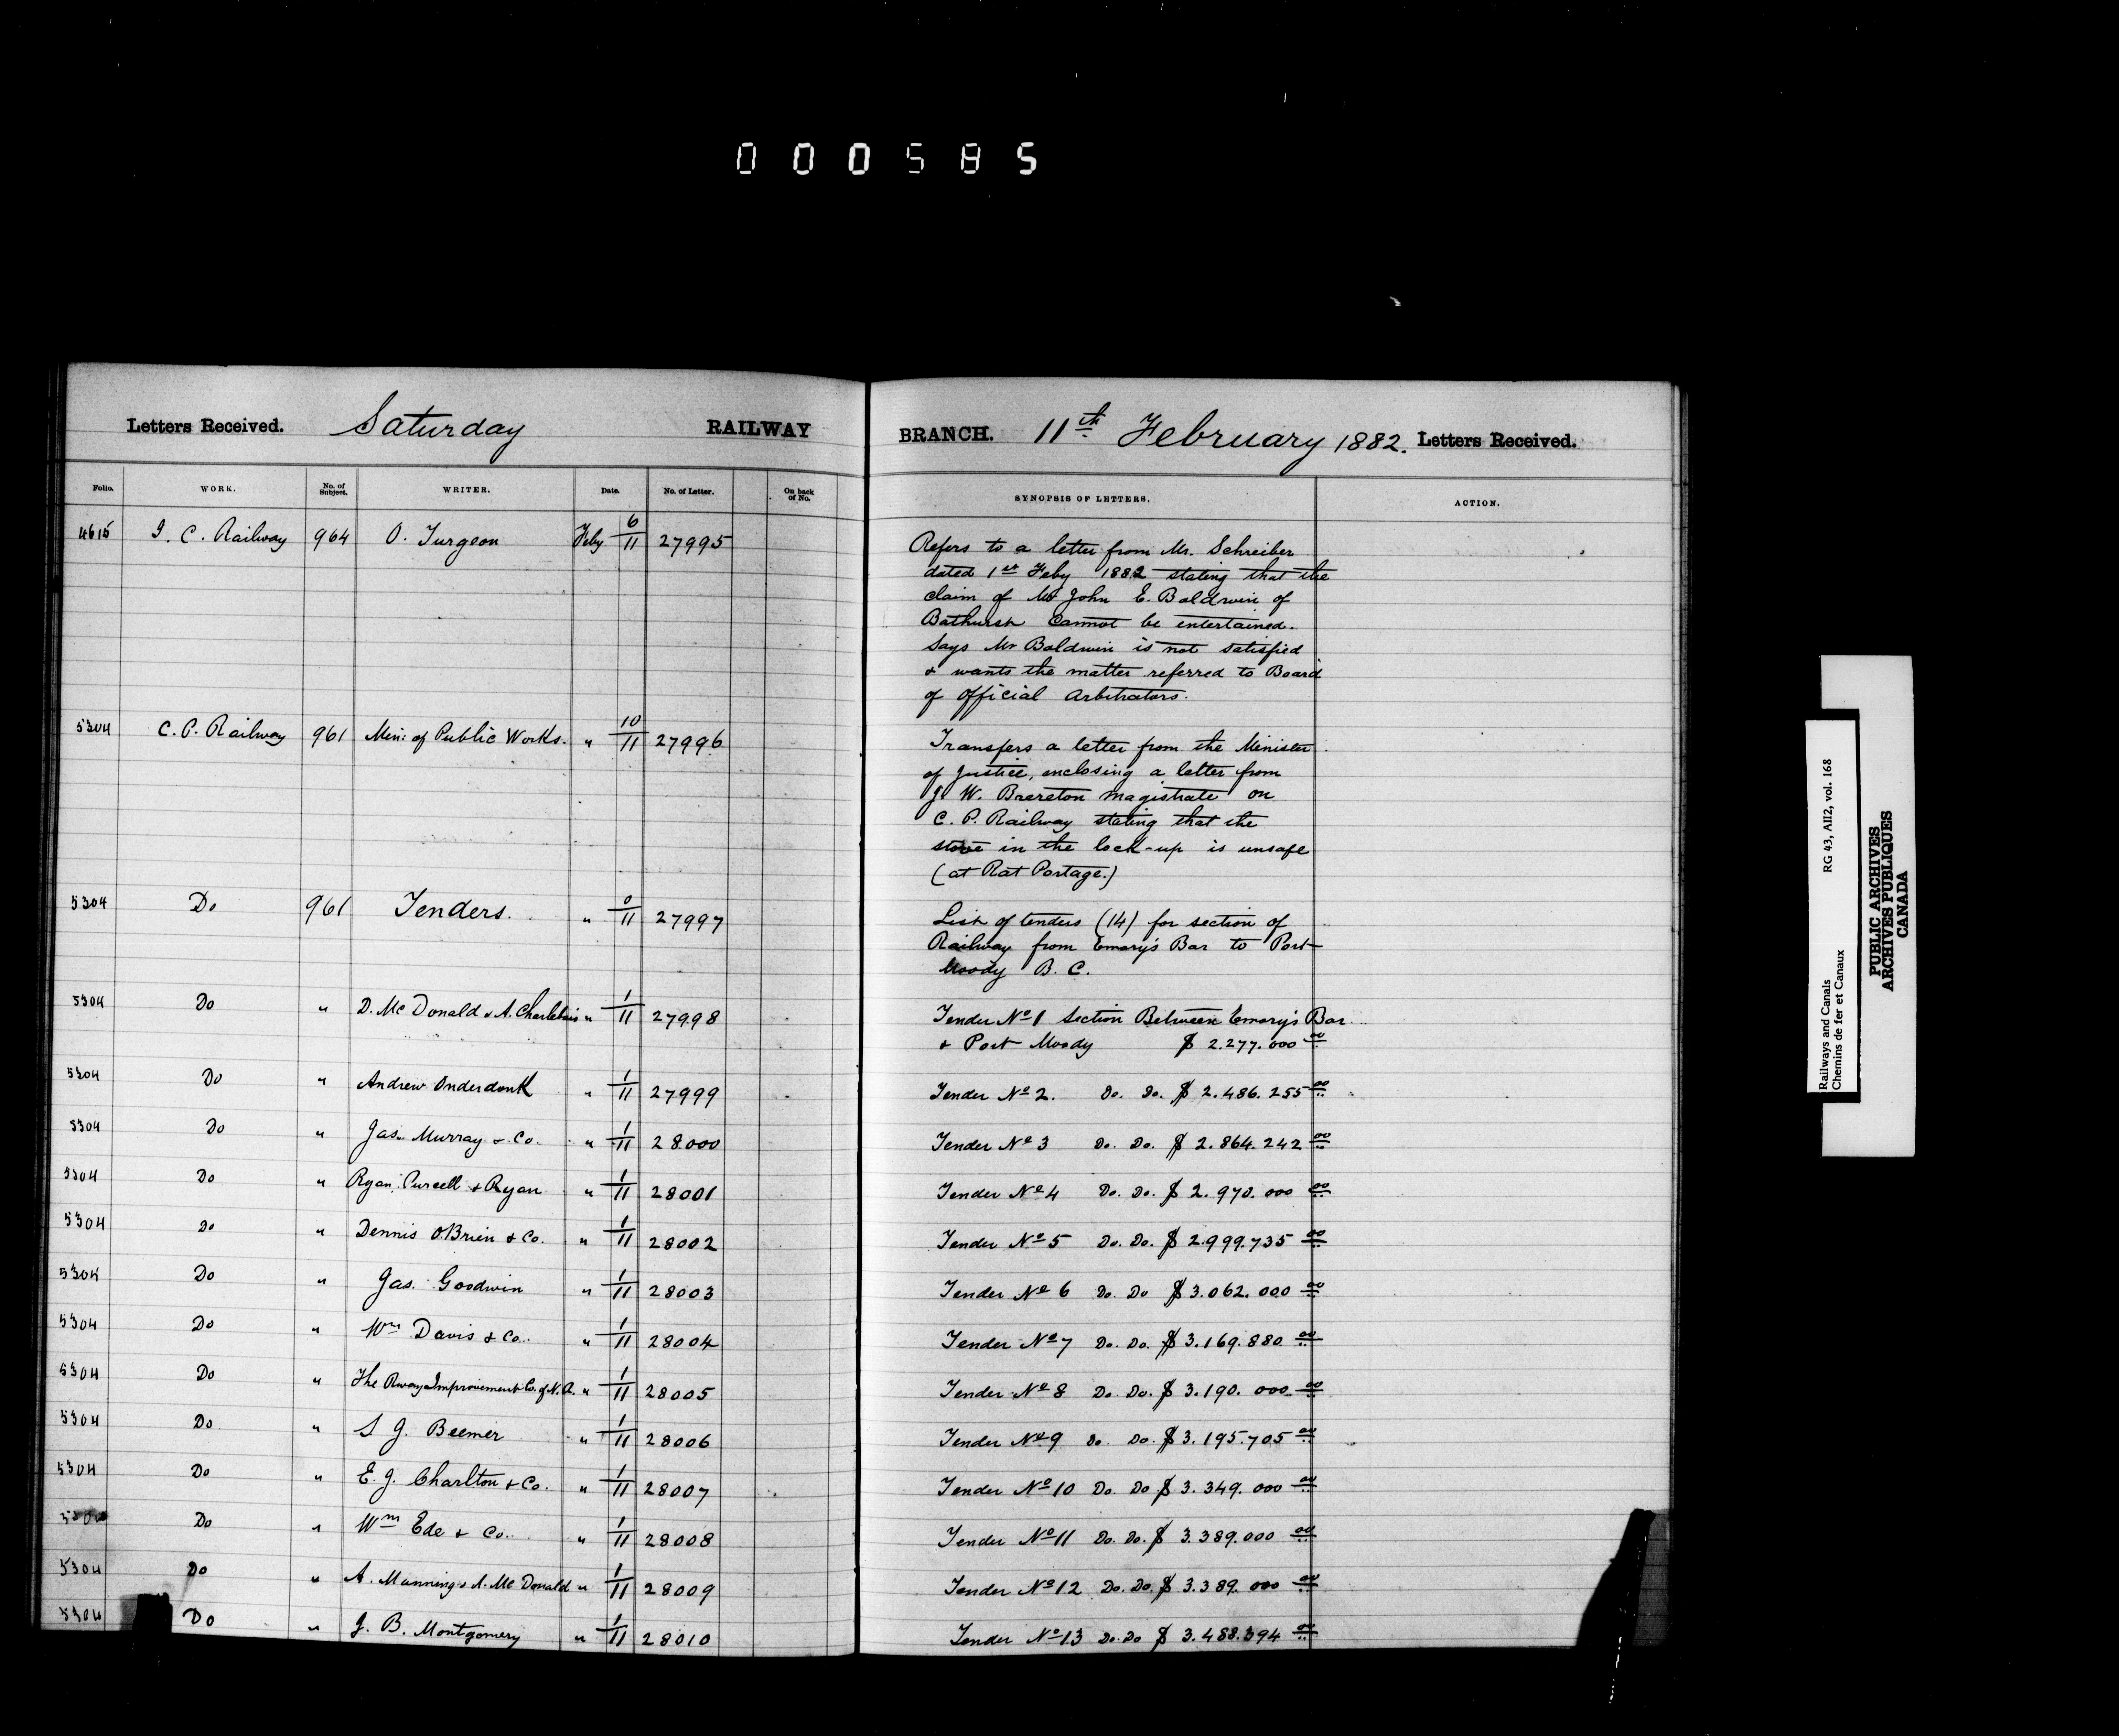 000585
Letters Received. Saturday RAILWAY BRANCH. 11th February 1882. Letters Received.
Folio. WORK. No. of Subject. WRITER. Date. No. of Letter. On back of No. SYNOPSIS OF LETTERS. ACTION.
4615 I. C. Railway 964 O. Turgeon Feby 6/11 27995 Refers to a letter from Mr. Schreiber
dated 1st Feby 1882 stating that the
claim of Mr John E. Baldwin of
Bathurst Cannot be entertained.
Says Mr Baldwin is not satisfied
& wants the matter referred to Board
of Official Arbitrators.
5304 C. P. Railway 961 Min: of Public Works. " 10/11 27996 Transfers a letter from the Minister
of Justice, enclosing a letter from
J. W. Brereton Magistrate on
C. P. Railway stating that the
stove in the lock-up is unsafe
(at Rat Portage.)
5304 Do 961 Tenders. " 0/11 27997 List of tenders (14) for section of
Railway from Emory's Bar to Port
Moody B. C.
5304 Do " D. McDonald & A. Charlebois " 1/11 27998 Tender No 1 Section Between Emory's Bar
& Port Moody $ 2.277.000 00
5304 Do " Andrew Onderdonk " 1/11 27999 Tender No 2. Do. Do. $ 2.486.255 00
5304 Do " Jas. Murray & Co. " 1/11 28000 Tender No 3 Do. Do. $ 2.864.242 00
5304 Do " Ryan, Purcell & Ryan " 1/11 28001 Tender No 4 Do. Do. $ 2.970.000 00
5304 Do " Dennis O'Brien & Co. " 1/11 28002 Tender No 5 Do. Do. $ 2.999.735 00
5304 Do " Jas. Goodwin " 1/11 28003 Tender No 6 Do. Do $ 3.062.000 00
5304 Do " Wm Davis & Co. " 1/11 28004 Tender No 7 Do. Do. $ 3.169.880 00
5304 Do " The Rway Improvement Co. of N. A. " 1/11 28005 Tender No 8 Do. Do. $ 3.190.000 00
5304 Do " S J. Beemer " 1/11 28006 Tender No 9 Do. Do. $ 3.195.705 00
5304 Do " E. J. Charlton & Co. " 1/11 28007 Tender No 10 Do. Do $ 3.349.000 00
Do " Wm Ede & Co. " 1/11 28008 Tender No 11 Do. Do. $ 3.389.000 00
5304 Do " A. Manning & A. McDonald " 1/11 28009 Tender No 12 Do. Do. $ 3.389.000 00
5304 Do " J. B. Montgomery " 1/11 28010 Tender No 13 Do. Do $ 3.488.394 00
Railways and Canals RG 43, AII2, vol. 168
Chemins de fer et Canaux
PUBLIC ARCHIVES
ARCHIVES PUBLIQUES
CANADA